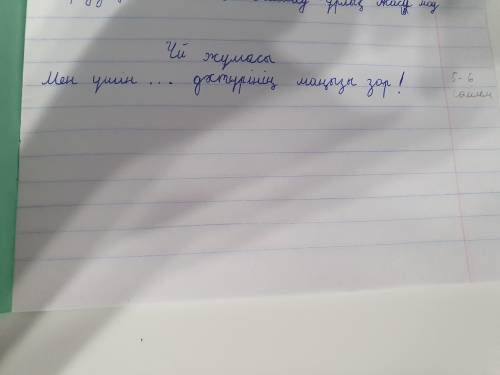 ұрлық жасау
Үй жұмасы
Мен үшин ... дәстүрінің маңызы зор!
5-6
сөйлем